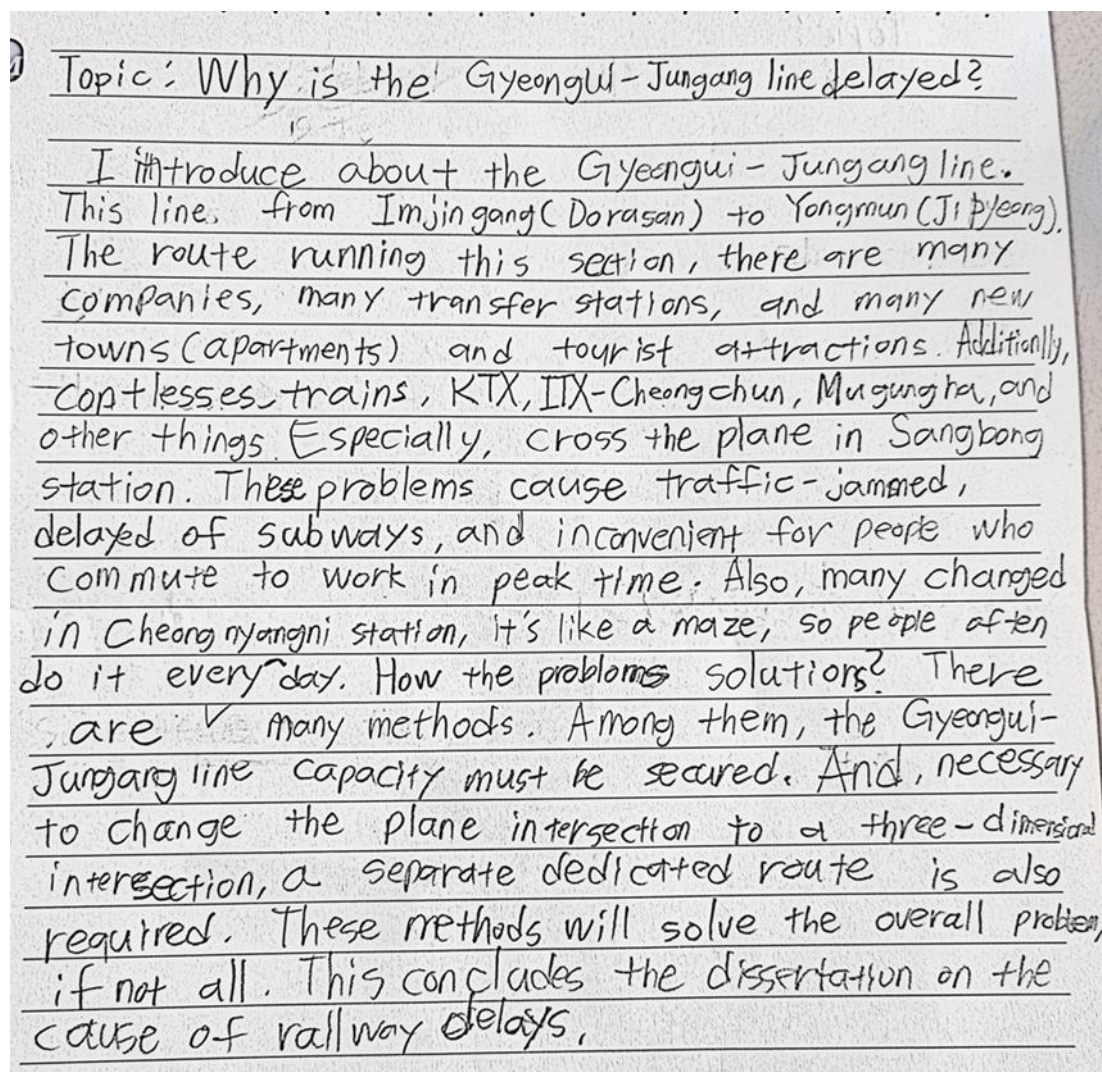 Topic: Why is the Gyeongui-Jungang line delayed?
I introduce about the Gyeongui-Jungang line.
This line, from Imjingang(Dorasan) to Yongmun(Jipyeong).
The route running this section, there are many
companies, many transfer stations, and many new
towns(apartments) and tourist attractions. Additionlly,
trains, KTX, ITX-Cheongchun, Mugungha, and
other things. Especially, cross the plane in Sangbong
station. These problems cause traffic-jammed,
delayed of subways, and inconvenient for people who
commute to work in peak time. Also, many changed
in Cheongnyangni station, it's like a maze, so people often
do it everyday. How the problems solutions? There
are many methods. Among them, the Gyeongui-
Jungang line capacity must be secured. And, necessary
to change the plane intersection to a three-dimensional
intersection, a separate dedicated route is also
required. These methods will solve the overall problem,
if not all. This concludes the dissertation on the
cause of railway delays.